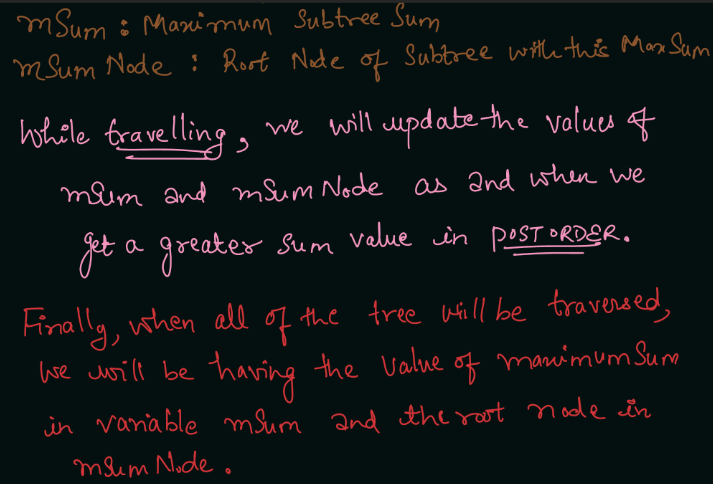 mSum : Maximum Subtree Sum
mSum Node : Root Node of Subtree with this Max Sum
While travelling, we will update the values of
mSum and mSum Node as and when we
get a greater sum value in POSTORDER.
Finally, when all of the tree will be traversed,
we will be having the value of maximum Sum
in variable mSum and the root node in
mSum Node.